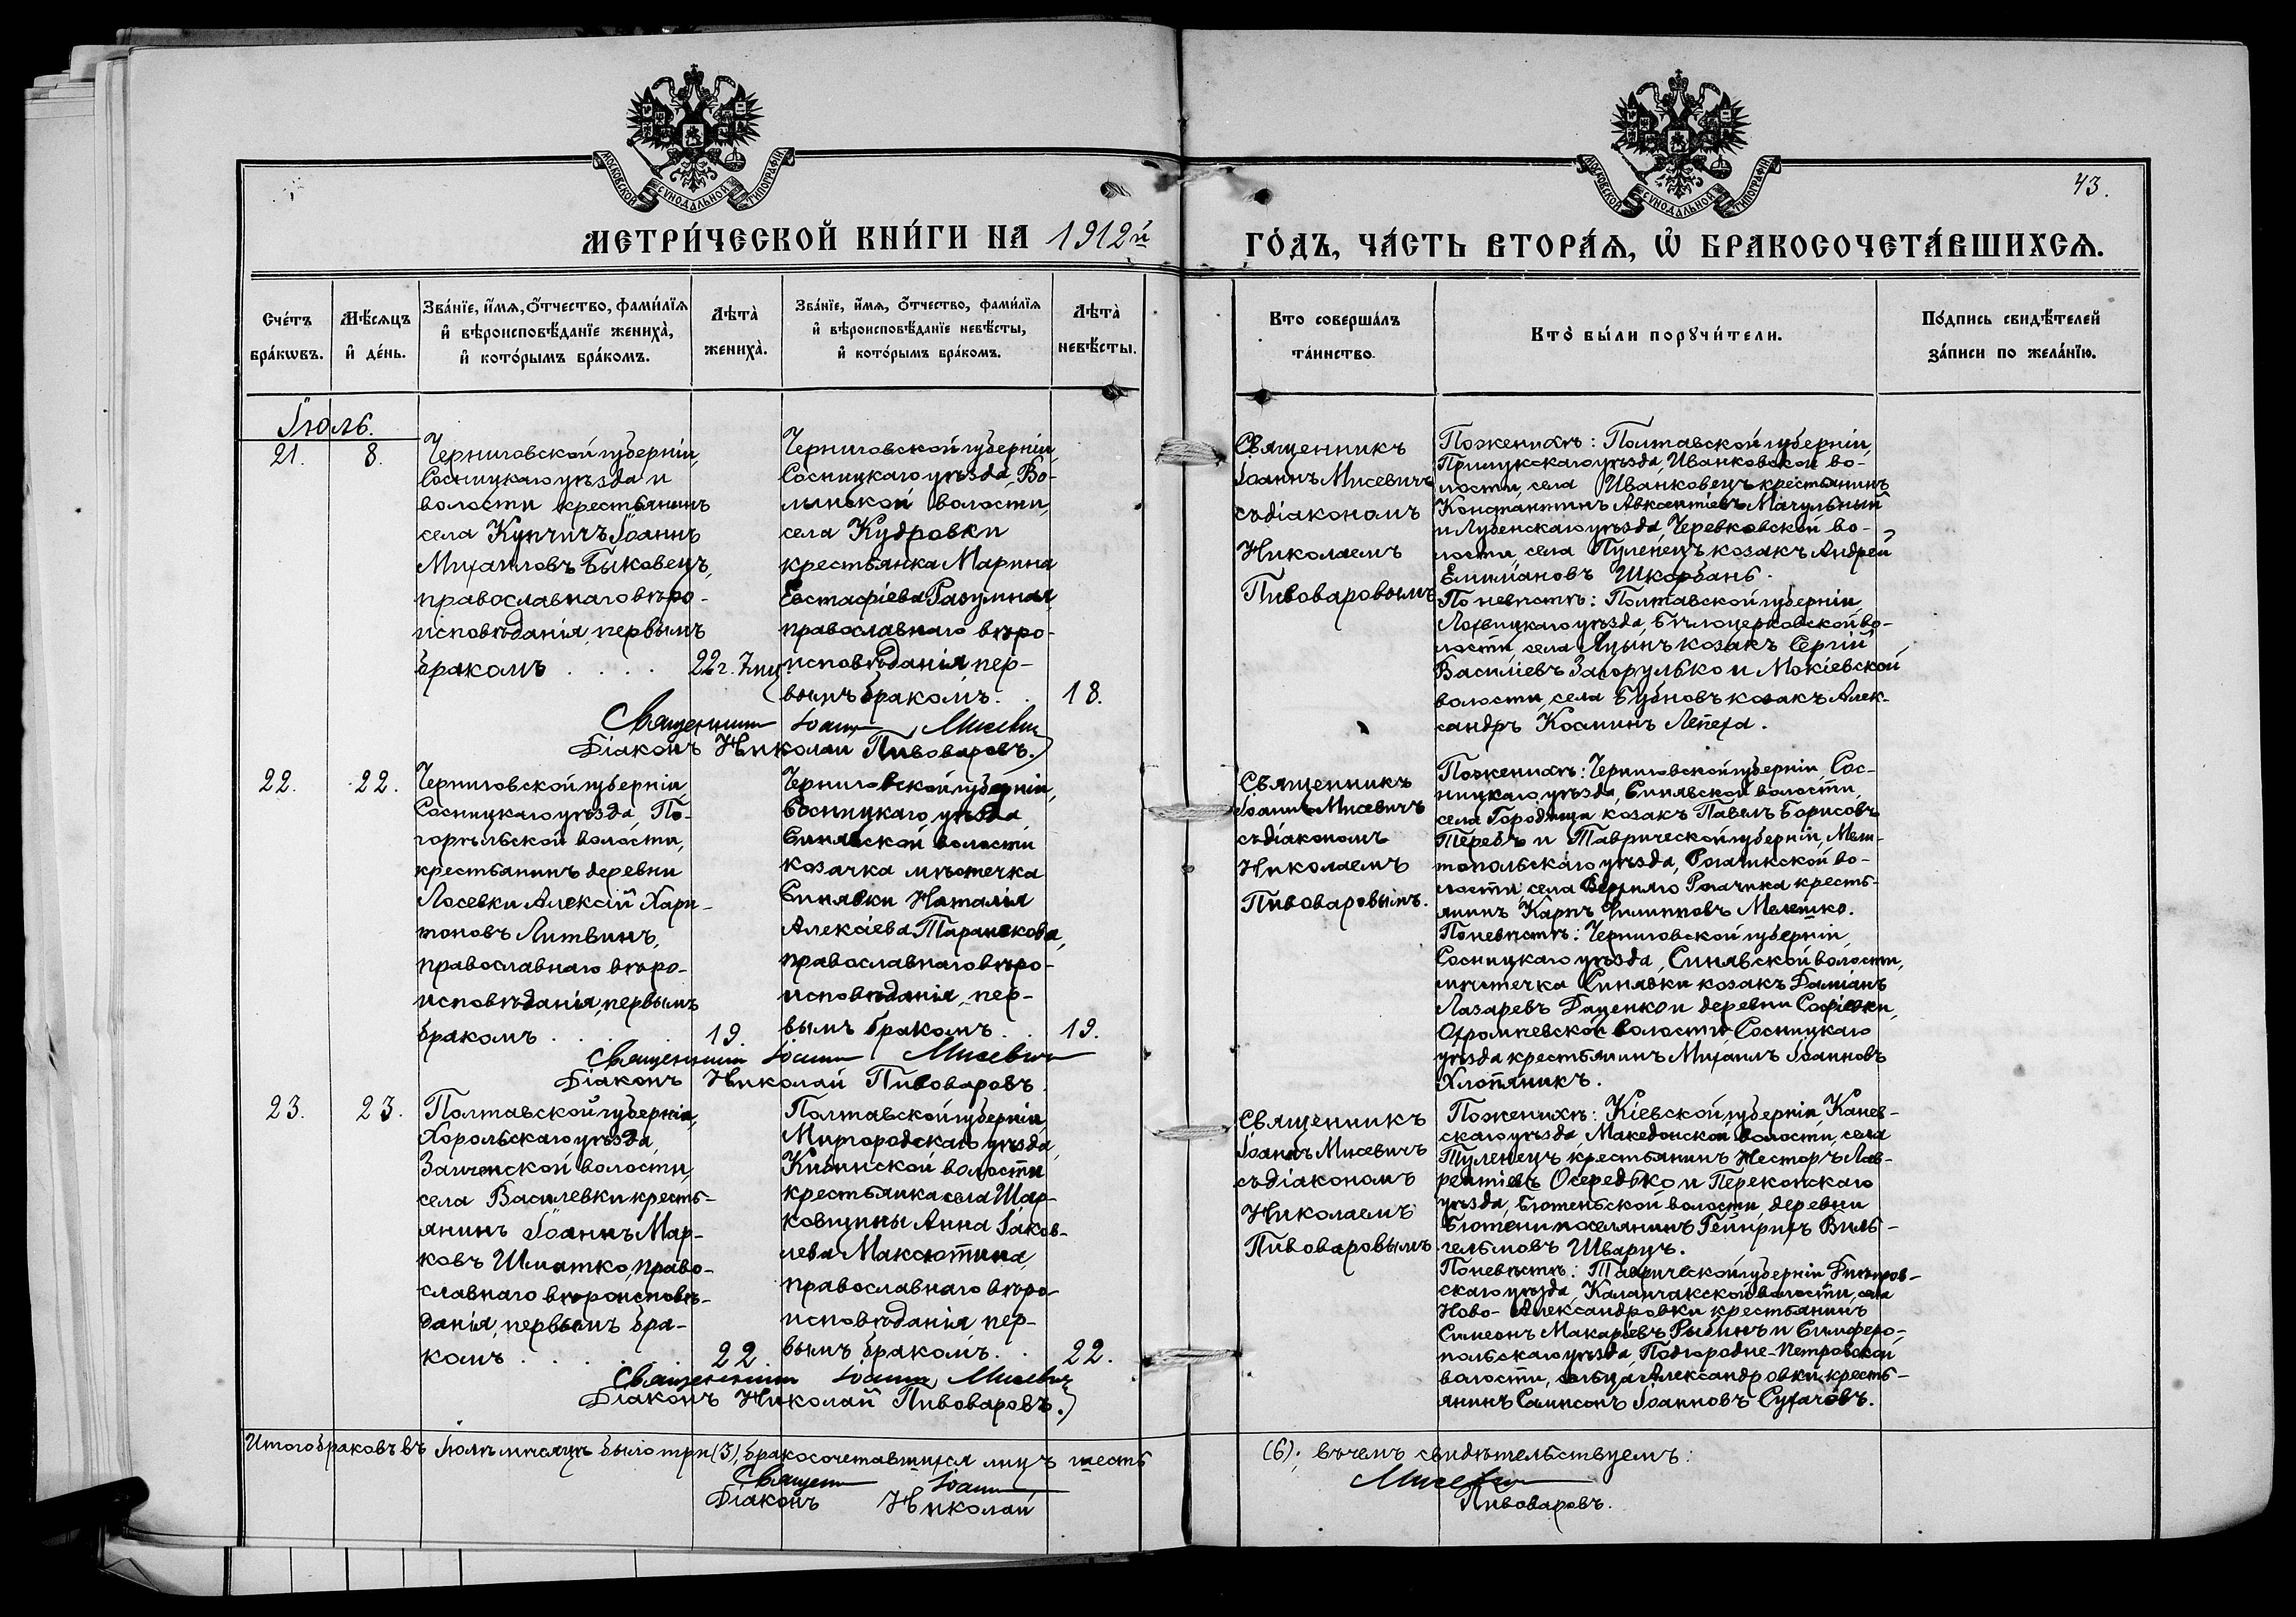 МОСКОВСКОЙ СѴНОДАЛЬНОЙ ТИПОГРАФІИ
МОСКОВСКОЙ СѴНОДАЛЬНОЙ ТИПОГРАФІИ
43.
МЕТРИ́ЧЕСКОЙ КНИ́ГИ НА 1912й
ГО́ДЪ, ЧА́СТЬ ВТОРА́Ѧ, Ѡ҆ БРАКОСОЧЕТА́ВШИХСѦ.
Счéтъ
брáкѡвъ.
Мѣ́сѧцъ
и҆ дéнь.
Звáнїе, и҆́мѧ, ѻ҆́тчество, фами́лїѧ
и҆ вѣроисповѣ́данїе женихà,
и҆ кото́рымъ брáкомъ.
Лѣтà
женихà.
Звáнїе, и҆́мѧ, ѻ҆́тчество, фами́лїѧ
и҆ вѣроисповѣ́данїе невѣ́сты,
и҆ кото́рымъ брáкомъ.
Лѣтà
невѣ́сты.
Кто совершáлъ
тáинство.
Ктò бы́ли порꙋчи́тели.
По́дпись свидѣ́телей
зáписи по желáнїю.
Іюль.
21.
8.
Черниговской губерніи,
Сосницкаго уѣзда и
волости крестьянинъ
села Купчичъ Іоаннъ
Михаиловъ Быковецъ,
православнаго вѣро-
исповѣданія, первымъ
бракомъ . . . .
22 г. 7 мц
Черниговской губерніи,
Сосницкаго уѣзда, Во-
лынской волости,
села Кудровки
крестьянка Марина
Евстафіева Разумная,
православнаго вѣро-
исповѣданія, пер-
вымъ бракомъ. .
18.
Священникъ Іоаннъ Мисевичъ
Діаконъ Николай Пивоваровъ.
Священникъ
Іоаннъ Мисевичъ
съ діакономъ
Николаемъ
Пивоваровымъ
По женихѣ: Полтавской губерніи,
Прилукскаго уѣзда, Иванковской во-
лости, села Иванковецъ крестьянинъ
Константинъ Авксентіевъ Мачульный
и Лубенскаго уѣзда, Черевковской во-
лости, села Пуленецъ козакъ Андрей
Емиліановъ Шкорбань.
По невѣстѣ: Полтавской губерніи,
Лохвицкаго уѣзда, Бѣлоцерковской во-
лости, села Луцынъ козакъ Сергій
Василіевъ Загорулько и Мокіевской
волости, села Бубновъ козакъ Алек-
сандръ Косминъ Лепеха.
22.
22.
Черниговской губерніи,
Сосницкаго уѣзда, По-
горѣльской волости,
крестьянинъ деревни
Лосевки Алексій Хари-
тоновъ Литвинъ,
православнаго вѣро-
исповѣданія, первымъ
бракомъ . . . .
19.
Черниговской губерніи,
Сосницкаго уѣзда,
Синявской волости
козачка мѣстечка
Синявки Наталія
Алексіева Таранскова,
православнаго вѣро-
исповѣданія, пер-
вымъ бракомъ . .
19.
Священникъ Іоаннъ Мисевичъ
Діаконъ Николай Пивоваровъ
Священникъ
Іоаннъ Мисевичъ
съ діакономъ
Николаемъ
Пивоваровымъ.
По женихѣ: Черниговской губерніи, Сос-
ницкаго уѣзда, Синявской волости,
села Городища козакъ Павелъ Борисовъ
Теребъ и Таврической губерніи, Мели-
топольскаго уѣзда, Рогачикской во-
лости, села Верхняго Рогачика кресть-
янинъ Карпъ Филипповъ Мелешко.
По невѣстѣ: Черниговской губерніи,
Сосницкаго уѣзда, Синявской волости,
мѣстечка Синявки козакъ Даміанъ
Лазаревъ Даценко и деревни Софіевки,
Охромѣевской волости Сосницкаго
уѣзда крестьянинъ Михаилъ Іоанновъ
Хлопяникъ.
23.
23.
Полтавской губерніи,
Хорольскаго уѣзда,
Заиченской волости,
села Василевки кресть-
янинъ Іоаннъ Мар-
ковъ Шматко, право-
славнаго вѣроисповѣ-
данія, первымъ бра-
комъ . . . . .
22.
Полтавской губерніи,
Миргородскаго уѣзда,
Кибинской волости
крестьянка села Шар-
ковщины Анна Іаков-
лева Максютина,
православнаго вѣро-
исповѣданія, пер-
вымъ бракомъ. .
22.
Священникъ Іоаннъ Мисевичъ
Діаконъ Николай Пивоваровъ.
Священникъ
Іоаннъ Мисевичъ
съ діакономъ
Николаемъ
Пивоваровымъ.
По женихѣ: Кіевской губерніи Канев-
скаго уѣзда, Македонской волости, села
Тулѣнецъ крестьянинъ Несторъ Лав-
рентіевъ Осередько и Перекопскаго
уѣзда, Бютеньской волости, деревни
Бютени поселянинъ Гейнрихъ Виль-
гельмовъ Шварцъ.
По невѣстѣ: Таврической губерніи Днѣпров-
скаго уѣзда, Каланчакской волости, села
Ново-Александровки крестьянинъ
Симеонъ Макаріевъ Рыбинъ и Симферо-
польскаго уѣзда, Подгородне-Петровской
волости, сельца Александровки кресть-
янинъ Сампсонъ Іоанновъ Сухачовъ.
Итого браковъ въ Іюлѣ мѣсяцѣ было три (3), бракосочетавшихся лицъ шесть
(6); въ чемъ свидѣтельствуемъ:
Священникъ Іоаннъ
Мисевичъ
Діаконъ Николай
Пивоваровъ.